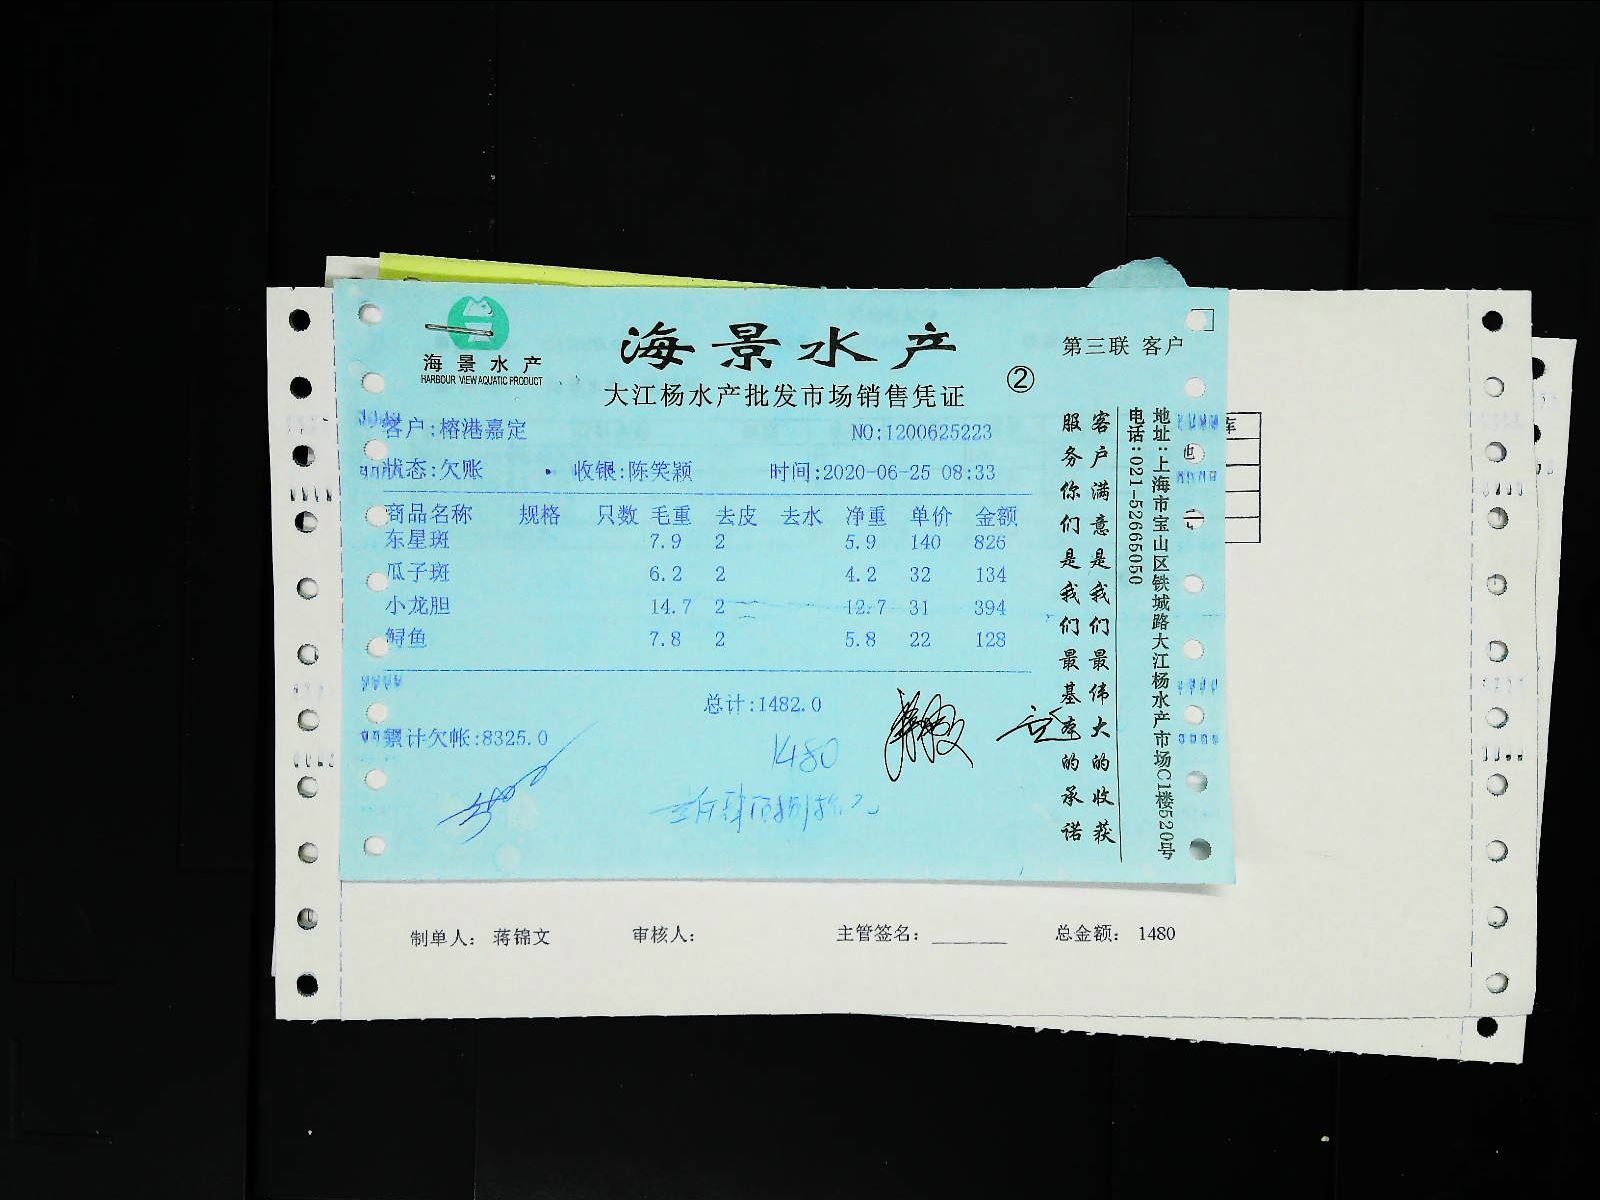 海景水产
HARBOUR VIEW AQUATIC PRODUCT
海景水产
大江杨水产批发市场销售凭证
②
第三联 客户
客户:榕港嘉定 NO:1200625223
状态:欠账 收银:陈笑颖 时间:2020-06-25 08:33
商品名称 规格 只数 毛重 去皮 去水 净重 单价 金额
东星斑 7.9 2 5.9 140 826
瓜子斑 6.2 2 4.2 32 134
小龙胆 14.7 2 12.7 31 394
鲟鱼 7.8 2 5.8 22 128
总计:1482.0
累计欠帐:8325.0
1480
客户满意是我们最伟大的收获
服务你们是我们最基本的承诺
地址:上海市宝山区铁城路大江杨水产市场C1楼520号
电话:021-52665050
库
制单人: 蒋锦文 审核人: 主管签名: 总金额: 1480